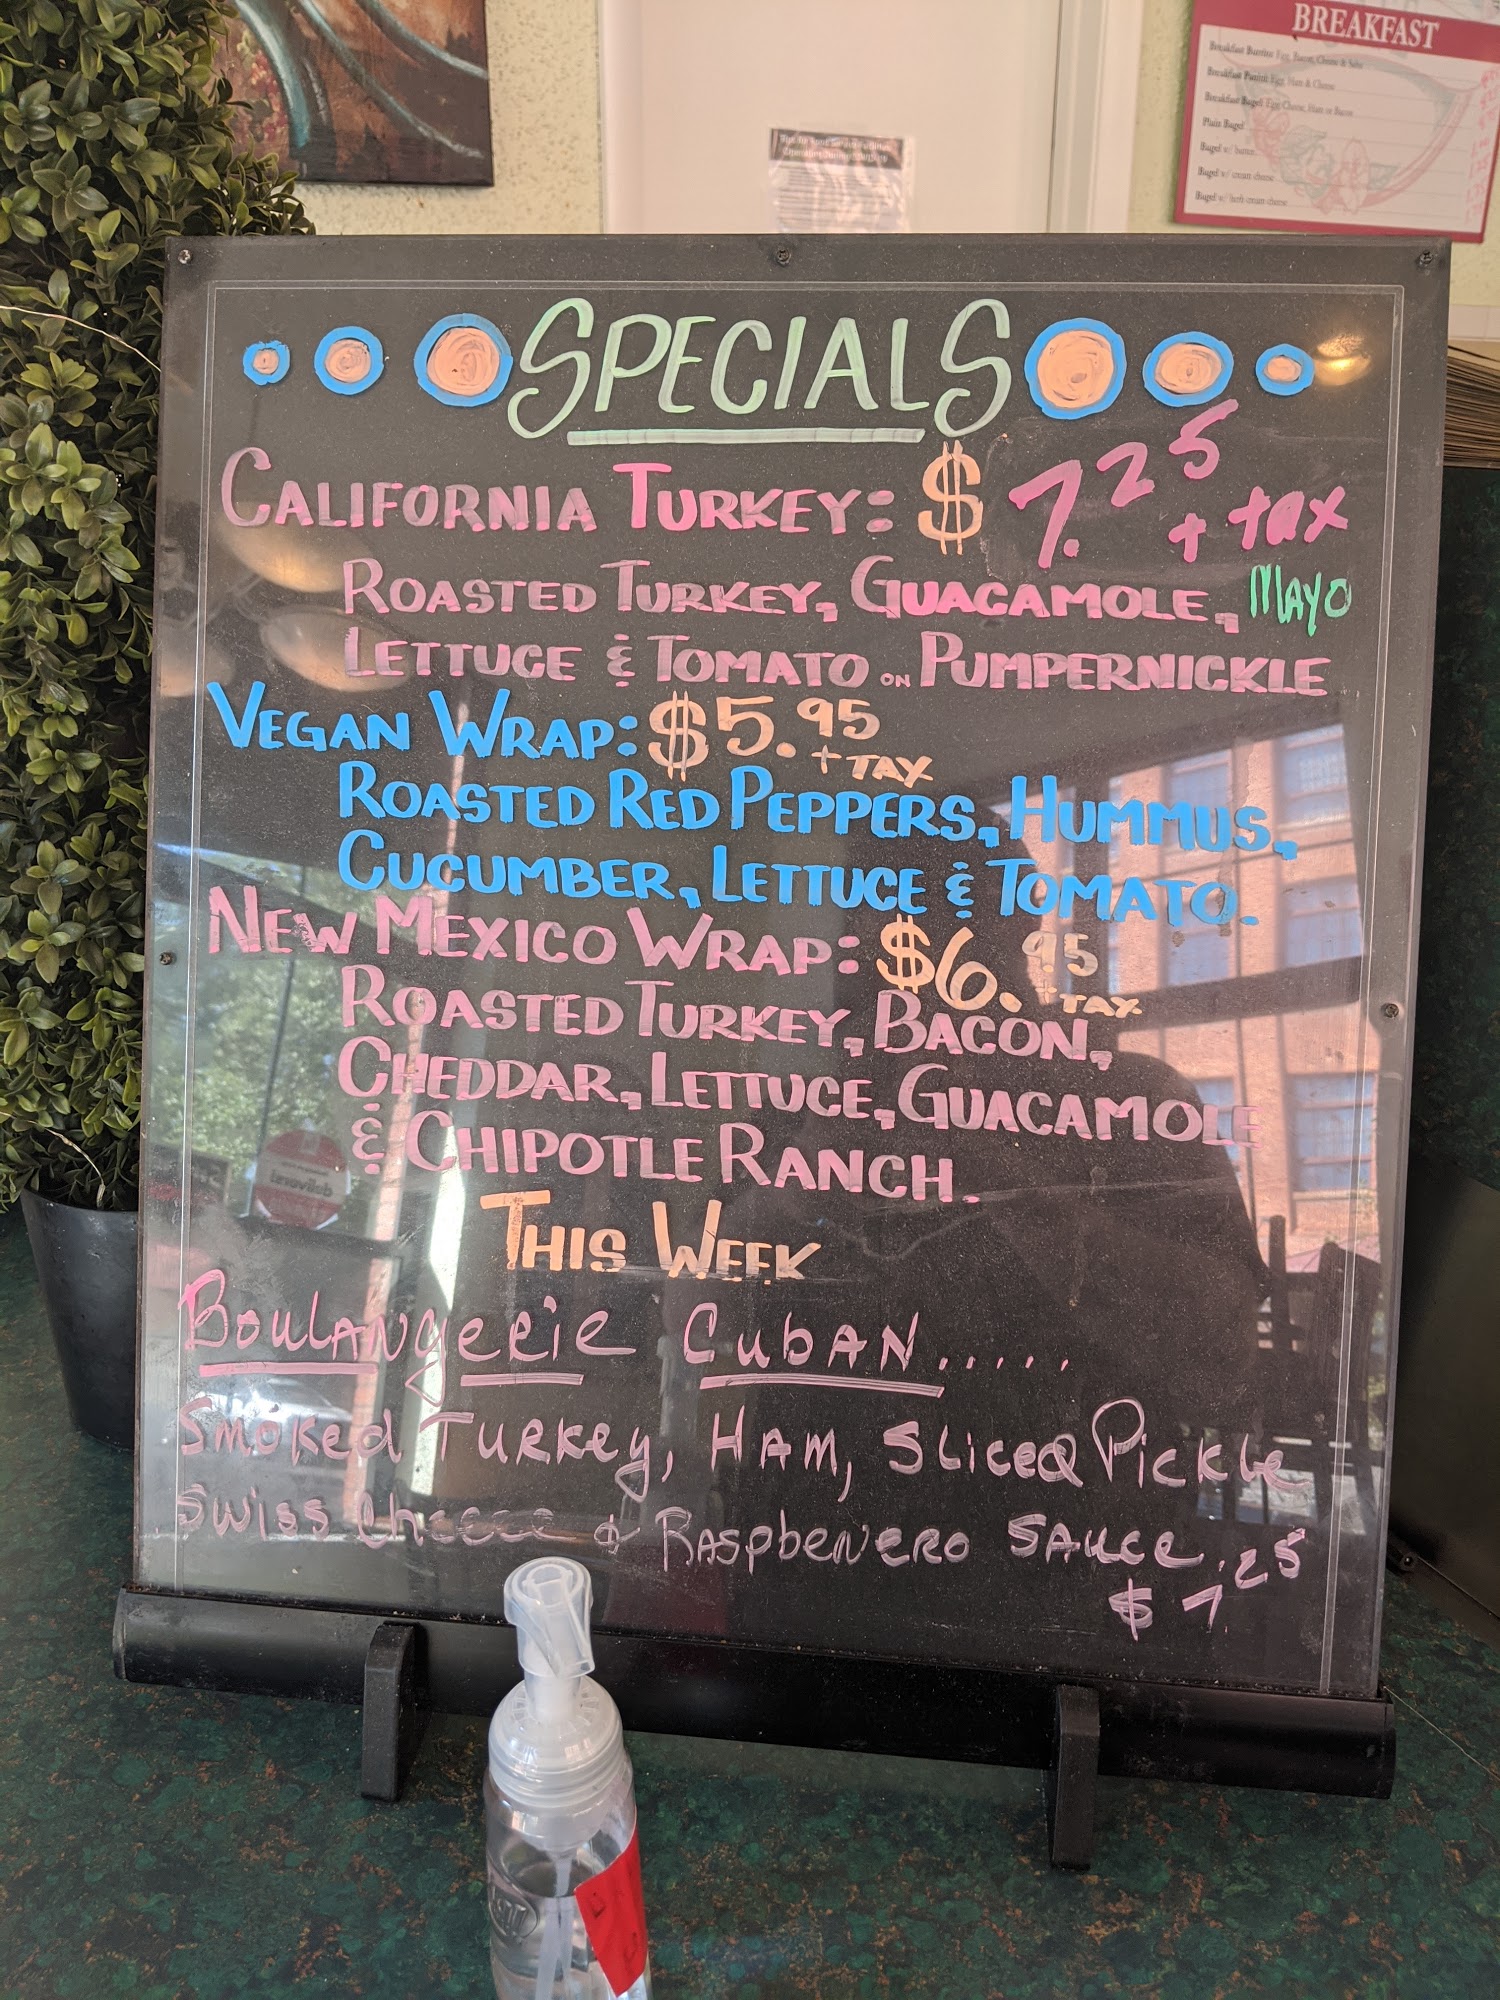 BREAKFAST
Breakfast Burrito: Egg, Bacon, Cheese & Salsa
Breakfast Panini: Egg, Ham & Cheese
Breakfast Bagel: Egg, Cheese, Ham or Bacon
Plain Bagel
Bagel w/ butter
Bagel w/ cream cheese
Bagel w/ herb cream cheese
SPECIALS
CALIFORNIA TURKEY: $7.25 + tax
ROASTED TURKEY, GUACAMOLE, MAYO
LETTUCE & TOMATO ON PUMPERNICKLE
VEGAN WRAP: $5.95 + TAX
ROASTED RED PEPPERS, HUMMUS,
CUCUMBER, LETTUCE & TOMATO.
NEW MEXICO WRAP: $6.95 + TAX
ROASTED TURKEY, BACON,
CHEDDAR, LETTUCE, GUACAMOLE
& CHIPOTLE RANCH.
THIS WEEK
BOULANgERiE CubAN.....
Smoked TURKey, HAM, Sliced Pickle
Swiss Cheese & RASpbeNeRo SAuce.
$7.25